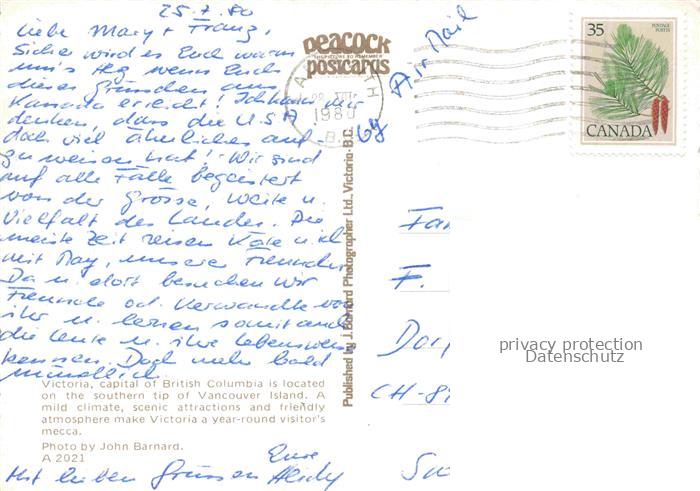 25.7.80
Liebe Mary + Franz,
Sicher wird es Euch warm
um's Herz wenn Euch
dieses Grüsschen aus
Kanada erreicht! Ich kann mir
denken, dass die USA
doch viel Ähnliches auf-
zuweisen hat! Wir sind
auf alle Fälle begeistert
von der Grösse, Weite u.
Vielfalt des Landes. Die
meiste Zeit reisen Käte u. ich
mit May, unserer Freundin
Da u. dort besuchen wir
Freunde od. Verwandte von
ihr u. lernen somit auch
die Leute u. ihre Lebensweise
kennen. Doch mehr bald
mündlich
Victoria, capital of British Columbia is located
on the southern tip of Vancouver Island. A
mild climate, scenic attractions and friendly
atmosphere make Victoria a year-round visitor's
mecca.
Photo by John Barnard.
A 2021
Eure
Mit lieben Grüssen
peacock
postcards
Published by J. Barnard Photographer Ltd., Victoria B.C.
1980
B.C.
by Air Mail
35
POSTAGE
POSTES
CANADA
Fam
F.
Dorf
CH-8
privacy protection
Datenschutz